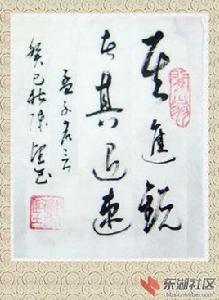 其進銳
者其退速
孟子名言
癸巳秋陳
东湖社区